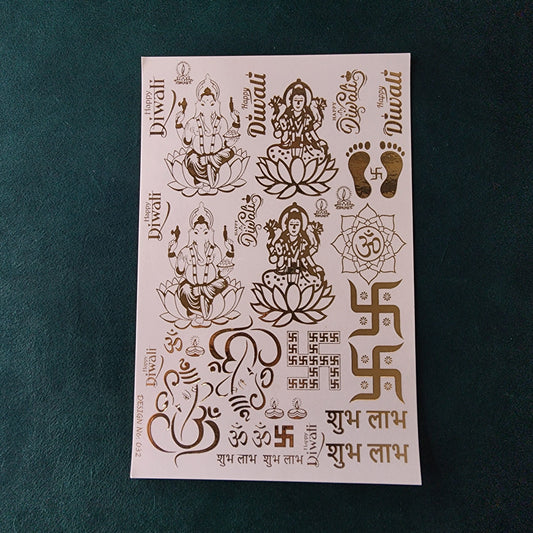 Happy
Diwali
Happy
Diwali
HAPPY
Diwali
Happy
Diwali
Happy
Diwali
HAPPY
Diwali
ॐ
Happy
Diwali
ॐ
ॐ
ॐ ॐ
Happy
Diwali
शुभ लाभ
शुभ लाभ
शुभ लाभ शुभ लाभ
DESIGN No. 032